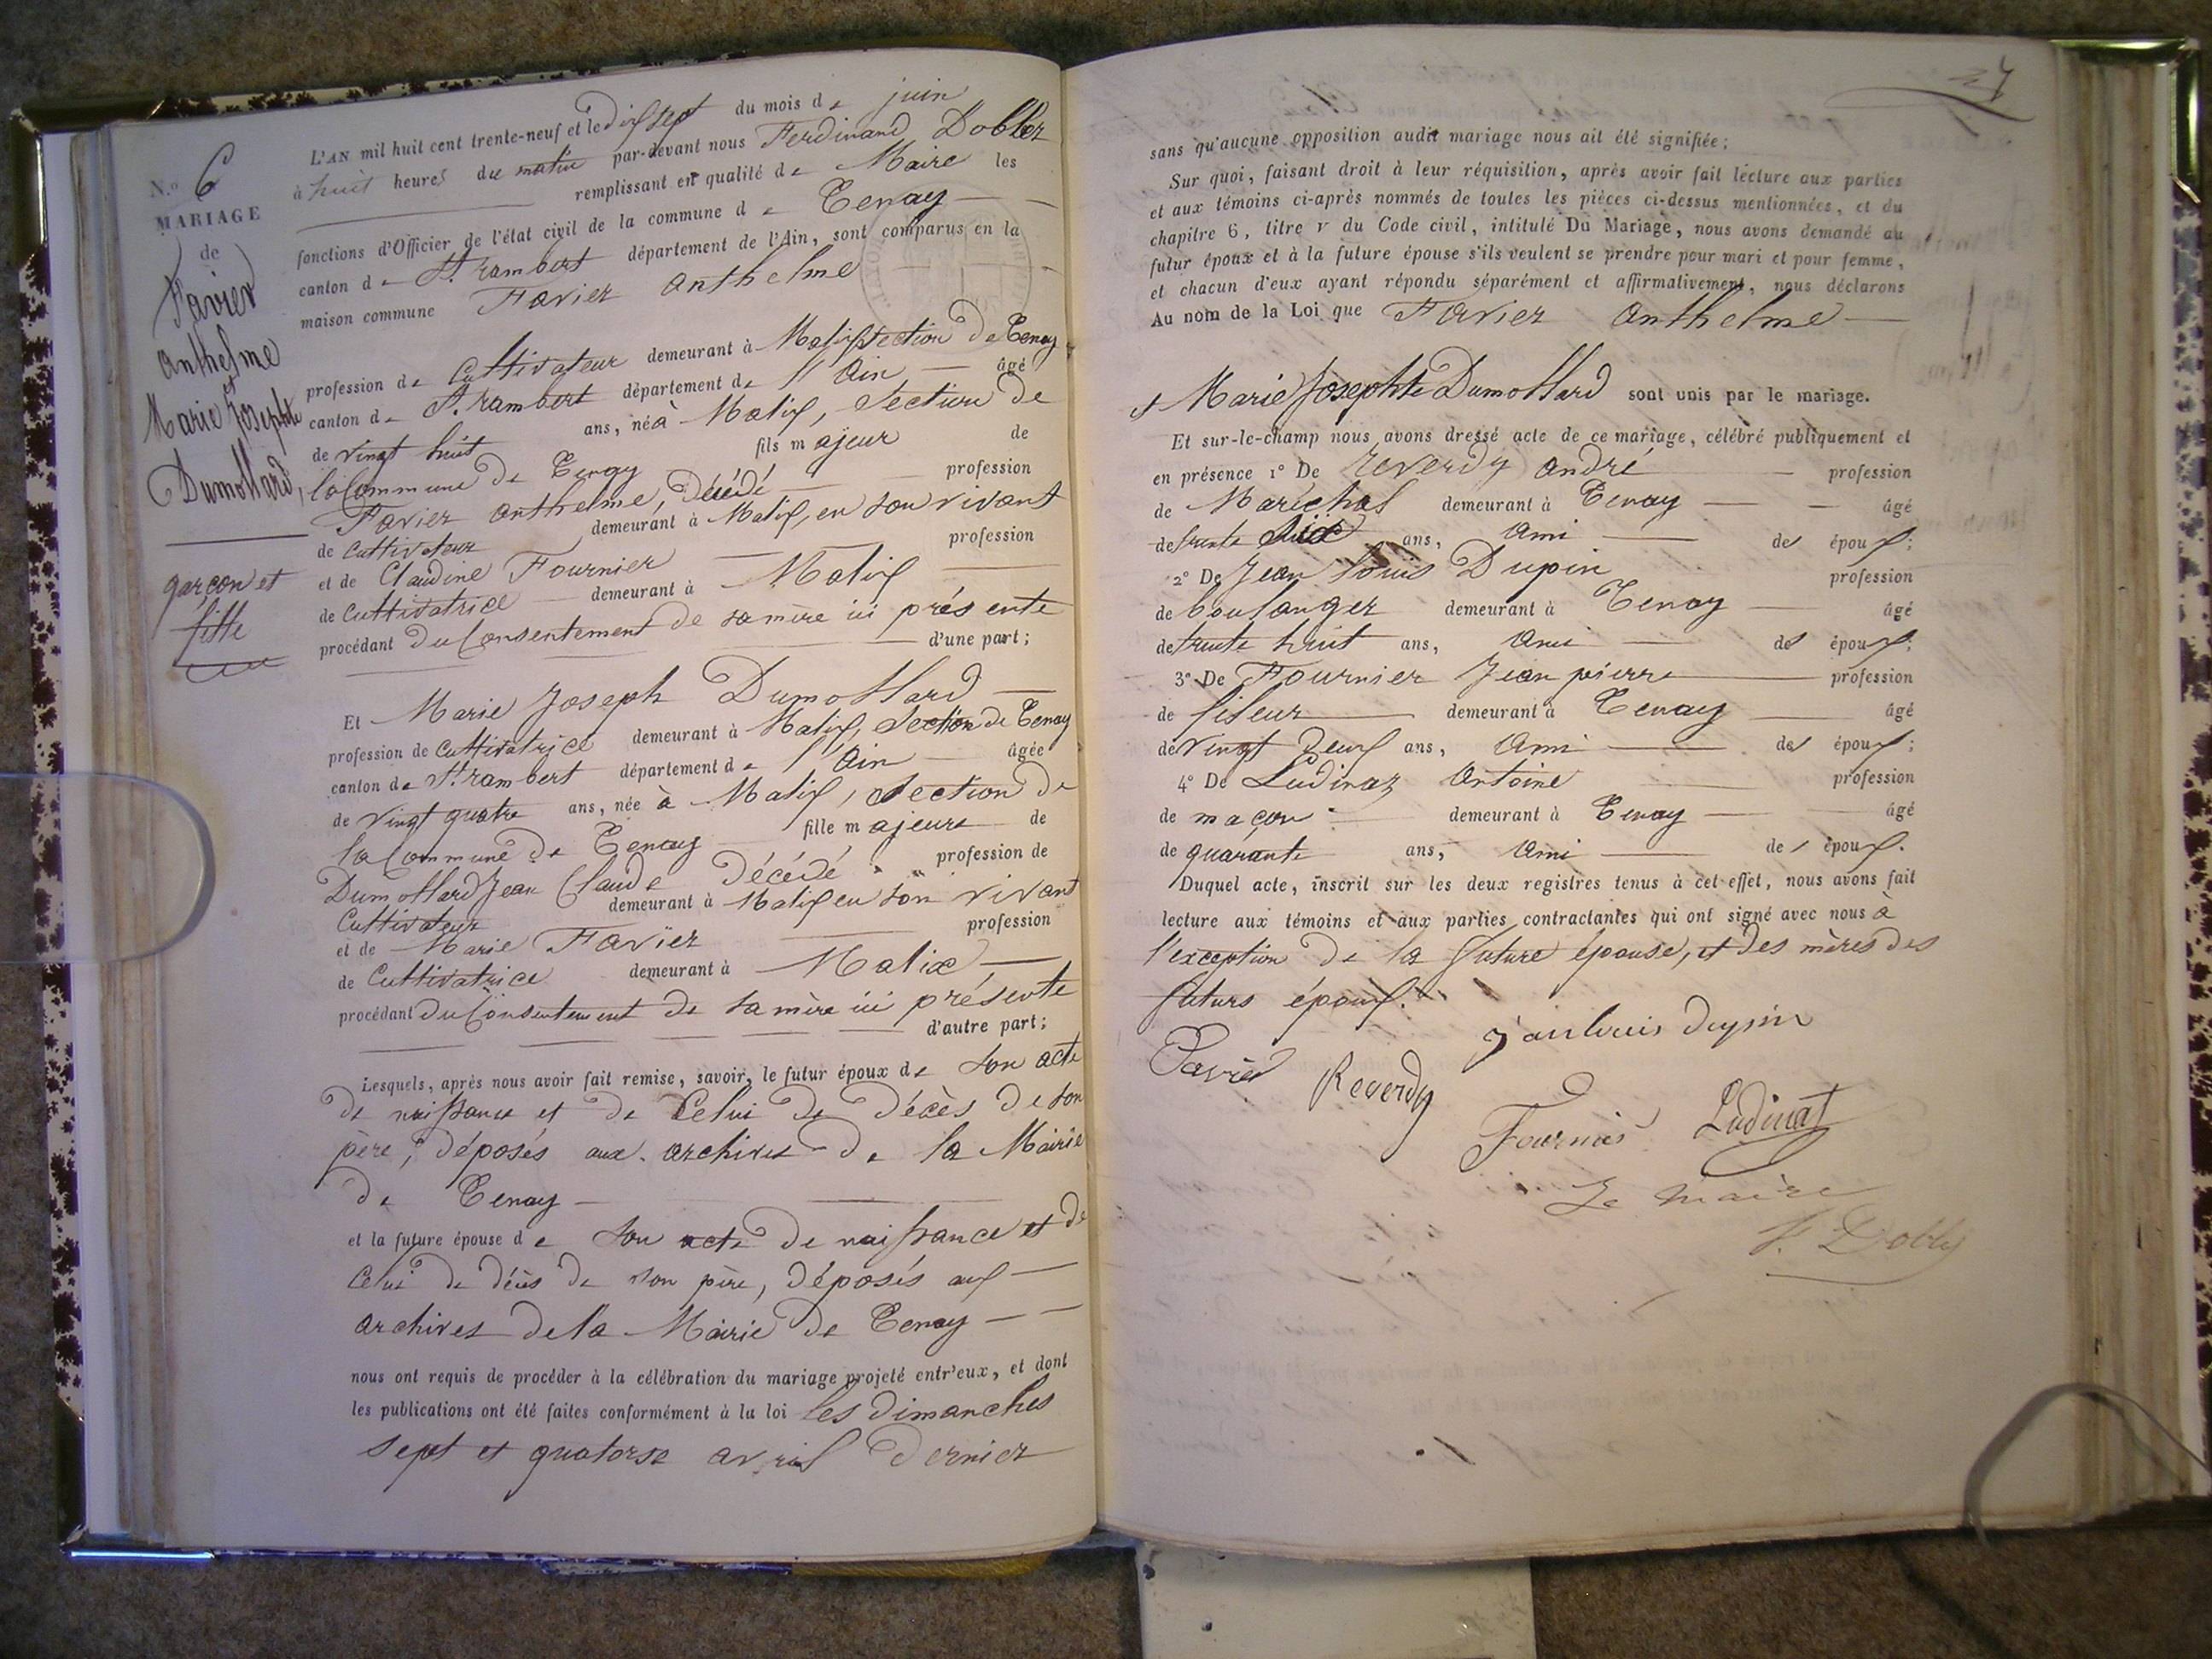 N.o 6
MARIAGE
de
Favier
Anthelme
et
Marie Josephte
Dumollard,
garçon et
fille
L'AN mil huit cent trente-neuf et le dix sept du mois de juin
à huit heures du matin par-devant nous Ferdinand Dobler
remplissant en qualité de Maire les
fonctions d'Officier de l'état civil de la commune de Tenay
canton de St. rambert département de l'Ain, sont comparus en la
maison commune Favier anthelme
profession de Cultivateur demeurant à Malix section de Tenay
canton de St. rambert département de l'Ain âgé
de vingt huit ans, né à Malix, section de
la Commune de Tenay fils majeur de
Favier anthelme, décédé profession
de Cultivateur demeurant à Malix, en son vivant
et de Claudine Fournier profession
de Cultivatrice demeurant à Malix
procédant du Consentement de sa mère ici présente
d'une part;
Et Marie Joseph Dumollard
profession de Cultivatrice demeurant à Malix, section de Tenay
canton de St. rambert département de l'Ain âgée
de vingt quatre ans, née à Malix, section de
la Commune de Tenay fille majeure de
Dumollard Jean Claude décédé profession de
Cultivateur demeurant à Malix en son vivant
et de Marie Favier profession
de Cultivatrice demeurant à Malix
procédant du Consentement de sa mère ici présente
d'autre part;
Lesquels, après nous avoir fait remise, savoir, le futur époux de son acte
de naissance et de Celui de décès de son
père, déposés aux archives de la Mairie
de Tenay
et la future épouse de son acte de naissance et de
Celui de décès de son père, déposés aux
archives de la Mairie de Tenay
nous ont requis de procéder à la célébration du mariage projeté entr'eux, et dont
les publications ont été faites conformément à la loi les dimanches
sept et quatorse avril dernier
27
sans qu'aucune opposition audit mariage nous ait été signifiée;
Sur quoi, faisant droit à leur réquisition, après avoir fait lecture aux parties
et aux témoins ci-après nommés de toutes les pièces ci-dessus mentionnées, et du
chapitre 6, titre V du Code civil, intitulé Du Mariage, nous avons demandé au
futur époux et à la future épouse s'ils veulent se prendre pour mari et pour femme,
et chacun d'eux ayant répondu séparément et affirmativement, nous déclarons
Au nom de la Loi que Favier anthelme
et Marie Josephte Dumollard sont unis par le mariage.
Et sur-le-champ nous avons dressé acte de ce mariage, célébré publiquement et
en présence 1° De Reverdy andré profession
de Maréchal demeurant à Tenay âgé
de trente ans, ami des époux;
2° De Jean Louis Dupin profession
de boulanger demeurant à Tenay âgé
de trente huit ans, ami des époux;
3° De Fournier Jean pierre profession
de fileur demeurant à Tenay âgé
de vingt Deux ans, ami des époux;
4° De Ludinaz Antoine profession
de maçon demeurant à Tenay âgé
de quarante ans, ami des époux.
Duquel acte, inscrit sur les deux registres tenus à cet effet, nous avons fait
lecture aux témoins et aux parties contractantes qui ont signé avec nous à
l'exception de la future épouse, et des mères des
futurs époux.
Favier Reverdy janlouis dupin
Fournier Ludinat
Le maire
F. Dobler